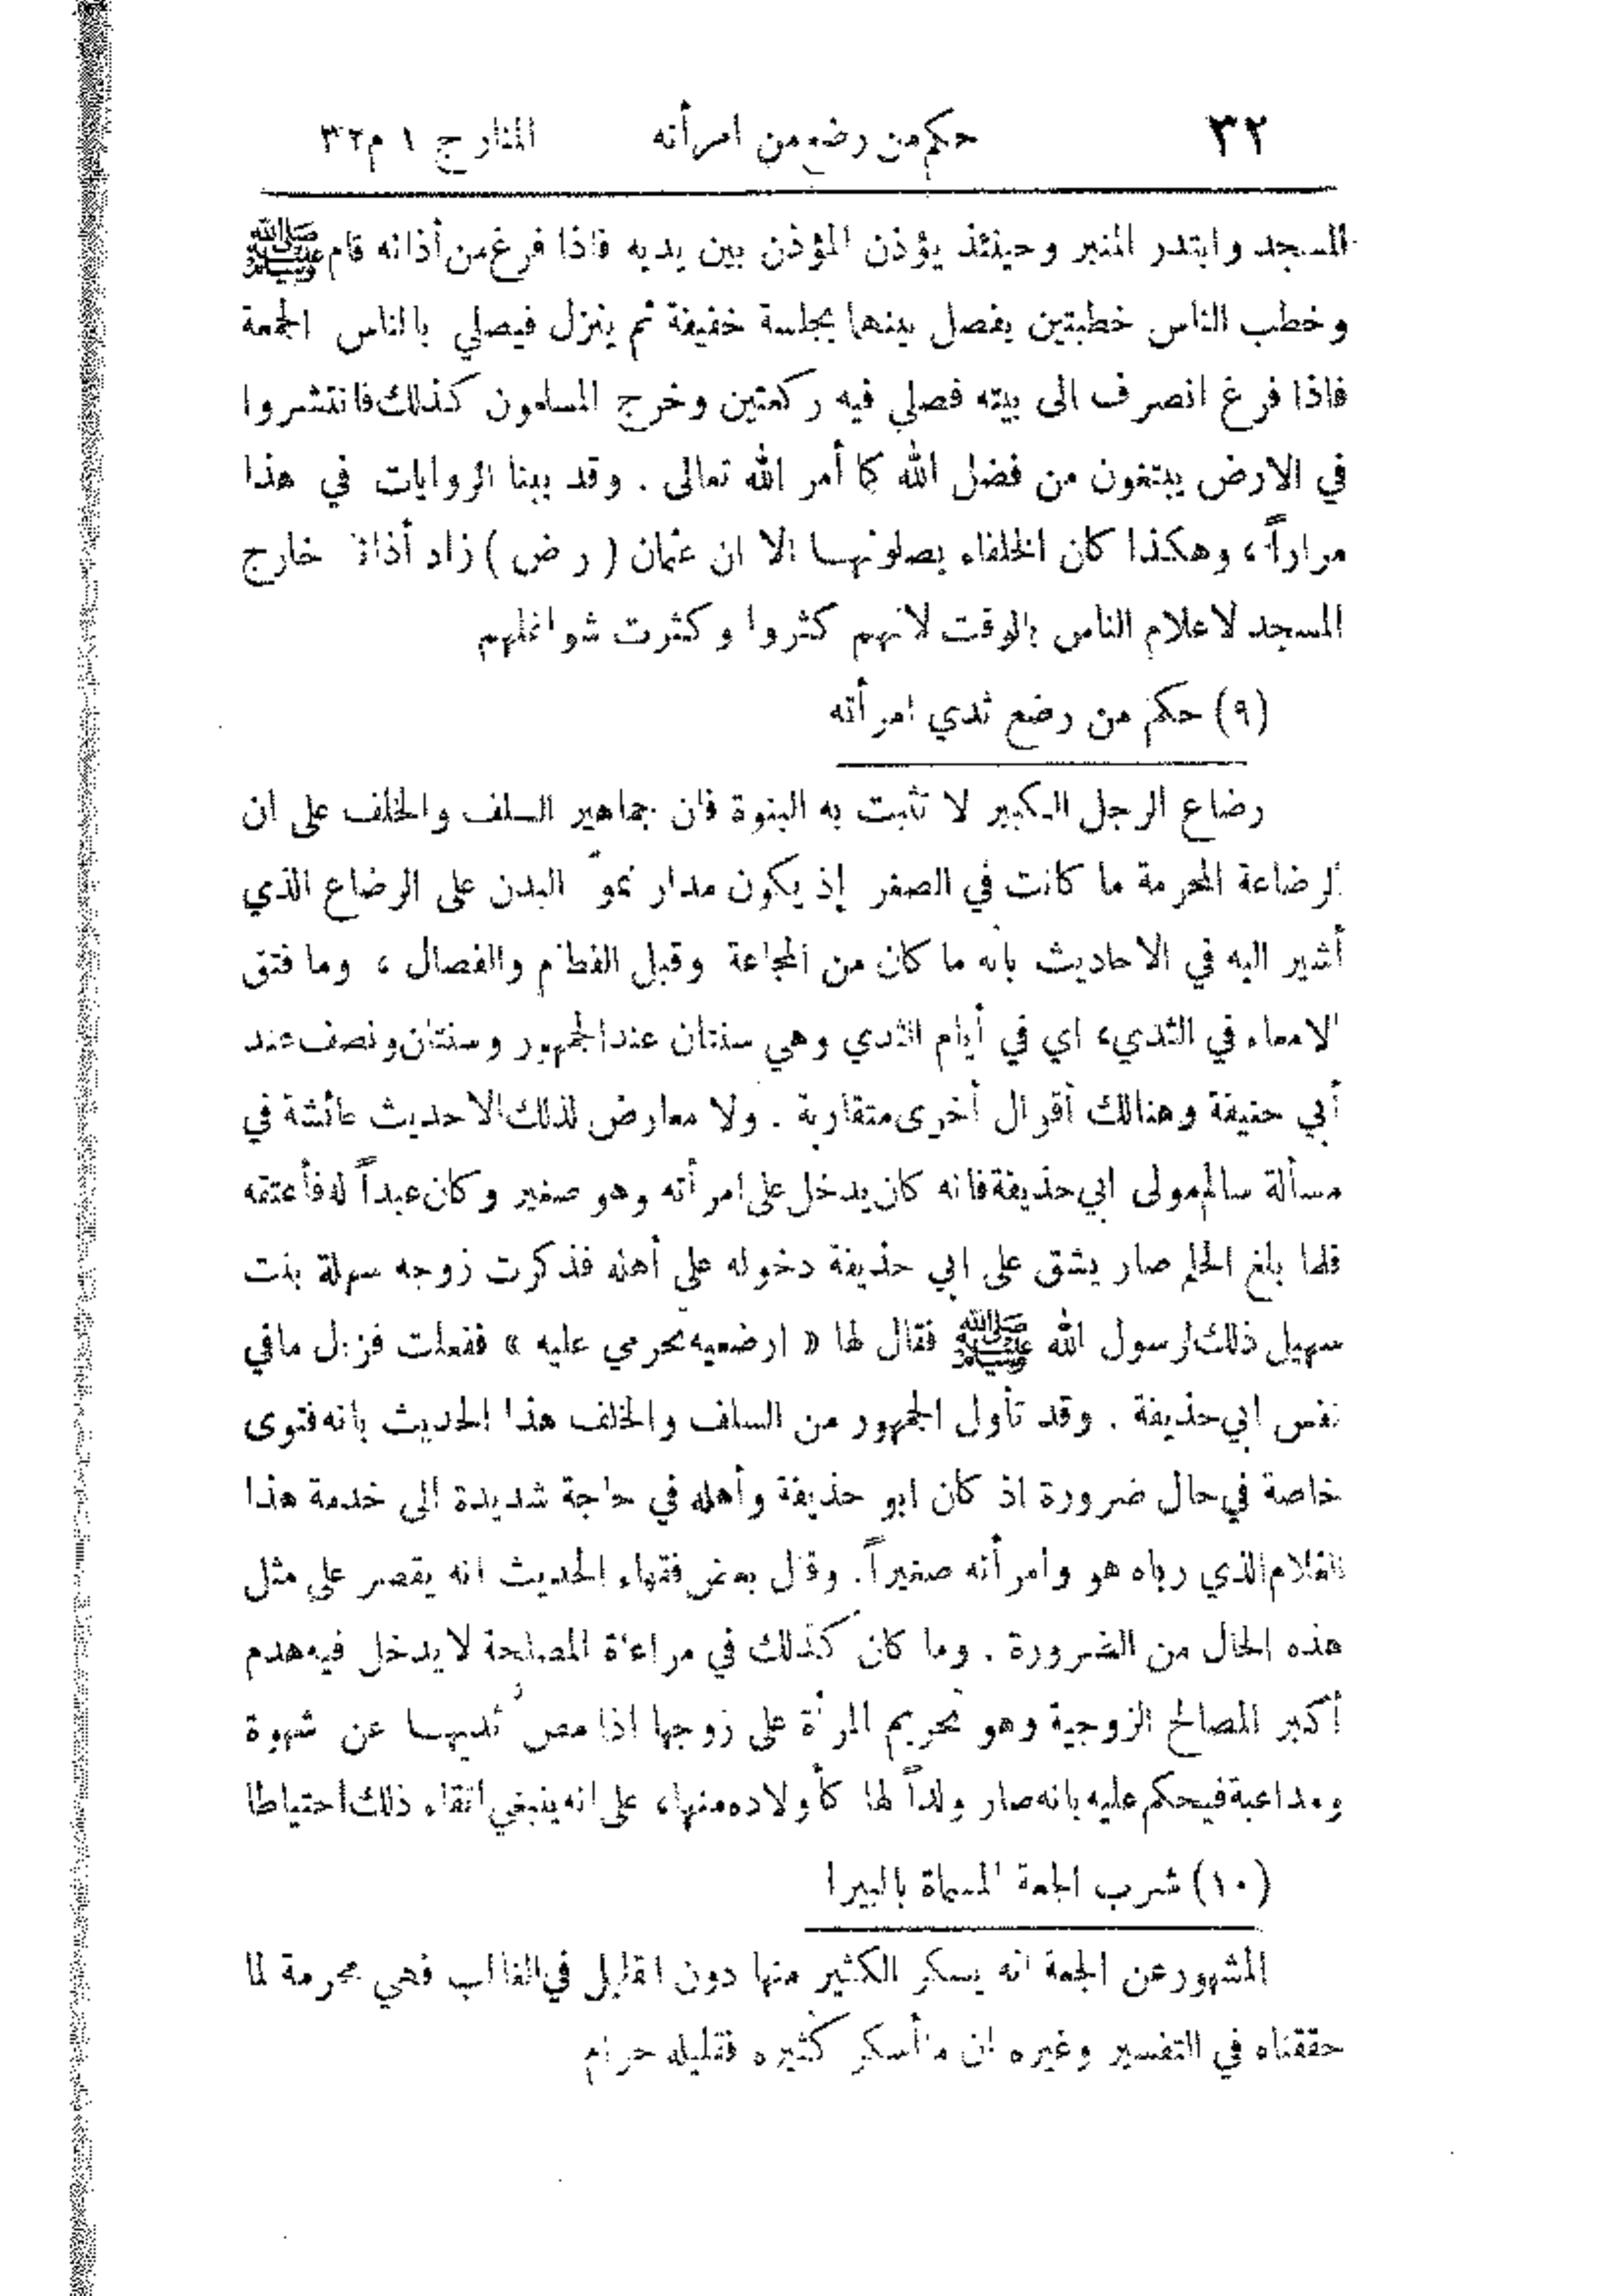 ٣٢ حكم من رضع من امرأته المنار ج ١ م ٣٢
المسجد وابتدر المنبر وحينئذ يؤذن المؤذن بين يديه فاذا فرغ من أذانه قام ﷺ
وخطب الناس خطبتين يفصل بينهما بجلسة خفيفة ثم ينزل فيصلي بالناس الجمعة
فاذا فرغ انصرف الى بيته فصلى فيه ركعتين وخرج المسلمون كذلك فانتشروا
في الارض يبتغون من فضل الله كما أمر الله تعالى . وقد بينا الروايات في هذا
مراراً ، وهكذا كان الخلفاء يصلونهـا الا ان عثمان ( رض ) زاد أذانا خارج
المسجد لاعلام الناس بالوقت لانهم كثروا وكثرت شواغلهم
(٩) حكم من رضع ثدي امرأته
رضاع الرجل الكبير لا تثبت به البنوة فان جماهير السلف والخلف على ان
الرضاعة المحرمة ما كانت في الصغر إذ يكون مدار نموّ البدن على الرضاع الذي
أشير اليه في الاحاديث بانه ما كان من المجاعة وقبل الفطام والفصال ، وما فتق
الامعاء في الثدي ، اي في أيام الثدي وهي سنتان عند الجمهور وسنتان ونصف عند
أبي حنيفة وهنالك أقوال أخرى متقاربة . ولا معارض لذلك الا حديث عائشة في
مسألة سالم مولى ابي حذيفة فانه كان يدخل على امرأته وهو صغير وكان عبداً له فأعتقه
فلما بلغ الحلم صار يشق على ابي حذيفة دخوله على أهله فذكرت زوجه سهلة بنت
سهيل ذلك لرسول الله ﷺ فقال لها « ارضعيه تحرمي عليه » ففعلت فزال ما في
نفس ابي حذيفة . وقد تأول الجمهور من السلف والخلف هذا الحديث بانه فتوى
خاصة في حال ضرورة اذ كان ابو حذيفة وأهله في حاجة شديدة الى خدمة هذا
الغلام الذي رباه هو وامرأته صغيراً . وقال بعض فقهاء الحديث انه يقصر على مثل
هذه الحال من الضرورة . وما كان كذلك في مراعاة المصلحة لا يدخل فيه هدم
أكبر المصالح الزوجية وهو تحريم المرأة على زوجها اذا مص ثديهـا عن شهوة
ومداعبة فيحكم عليه بانه صار ولداً لها كأولاده منها ، على انه ينبغي اتقاء ذلك احتياطا
(١٠) شرب الجعة المسماة بالبيرا
المشهور عن الجعة انه يسكر الكثير منها دون القليل في الغالب فهي محرمة لما
حققناه في التفسير وغيره ان ما أسكر كثيره فقليله حرام